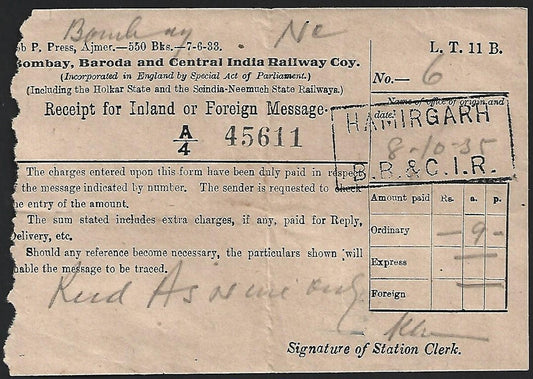 Bombay Ne
ob P. Press, Ajmer.—550 Bks.—7-6-33.
L. T. 11 B.
Bombay, Baroda and Central India Railway Coy.
(Incorporated in England by Special Act of Parliament.)
(Including the Holkar State and the Scindia-Neemuch State Railways.)
No.— 6
Receipt for Inland or Foreign Message.
Name of office of origin and
date:
HAMIRGARH
8-10-35
B. B. & C. I. R.
A/4 45611
The charges entered upon this form have been duly paid in respect
the message indicated by number. The sender is requested to check
the entry of the amount.
The sum stated includes extra charges, if any, paid for Reply,
Delivery, etc.
Should any reference become necessary, the particulars shown will
nable the message to be traced.
Amount paid Rs. a. p.
Ordinary — 9 -
Express —
Foreign —
Signature of Station Clerk.